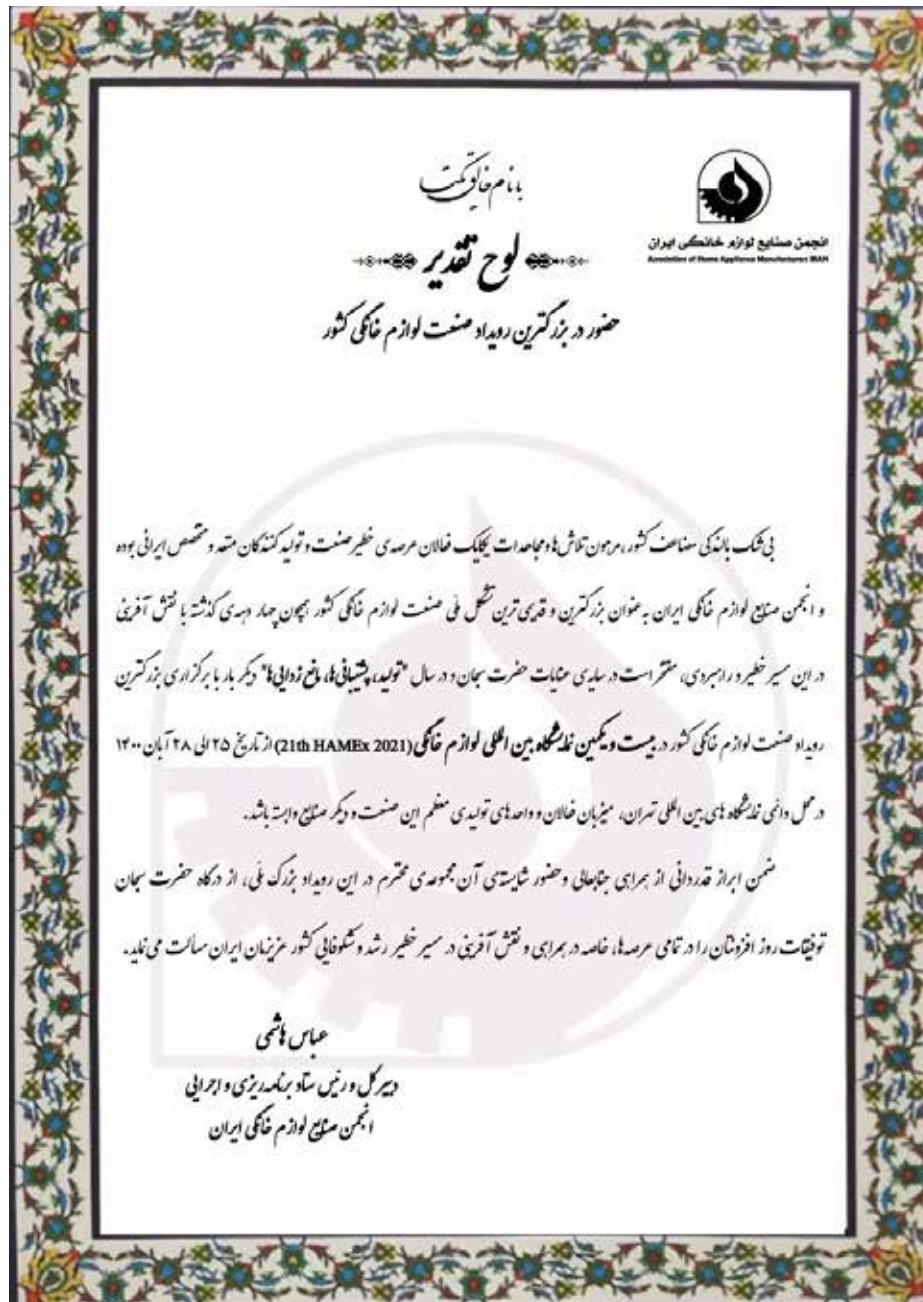 با نام خالق یکتا
انجمن صنایع لوازم خانگی ایران
Association of Home Appliance Manufacturers IRAN
لوح تقدیر
حضور در بزرگترین رویداد صنعت لوازم خانگی کشور
بی شک بالندگی صنایع کشور، مرهون تلاش ها و مجاهدات یکایک فعالان عرصه ی خطیر صنعت و تولید کنندگان متعهد و متخصص ایرانی بوده
و انجمن صنایع لوازم خانگی ایران به عنوان بزرگترین و قدیمی ترین تشکل ملی صنعت لوازم خانگی کشور همچون چهار دهه ی گذشته با نقش آفرینی
در این مسیر خطیر و راهبردی، مفتخر است در سایه ی عنایات حضرت سبحان و در سال "تولید، پشتیبانی ها، مانع زدایی ها" دیگر بار با برگزاری بزرگترین
رویداد صنعت لوازم خانگی کشور در بیست و یکمین نمایشگاه بین المللی لوازم خانگی (21th HAMEx 2021) از تاریخ ۲۵ الی ۲۸ آبان ۱۴۰۰
در محل دائمی نمایشگاه های بین المللی تهران، میزبان فعالان و واحدهای تولیدی معظم این صنعت و دیگر صنایع وابسته باشد.
ضمن ابراز قدردانی از همراهی جنابعالی و حضور شایسته ی آن مجموعه ی محترم در این رویداد بزرگ ملی، از درگاه حضرت سبحان
توفیقات روز افزونتان را در تمامی عرصه ها، خاصه در همراهی و نقش آفرینی در مسیر خطیر رشد و شکوفایی کشور عزیزمان ایران مسألت می نماید.
عباس هاشمی
دبیر کل و رئیس ستاد برنامه ریزی و اجرایی
انجمن صنایع لوازم خانگی ایران